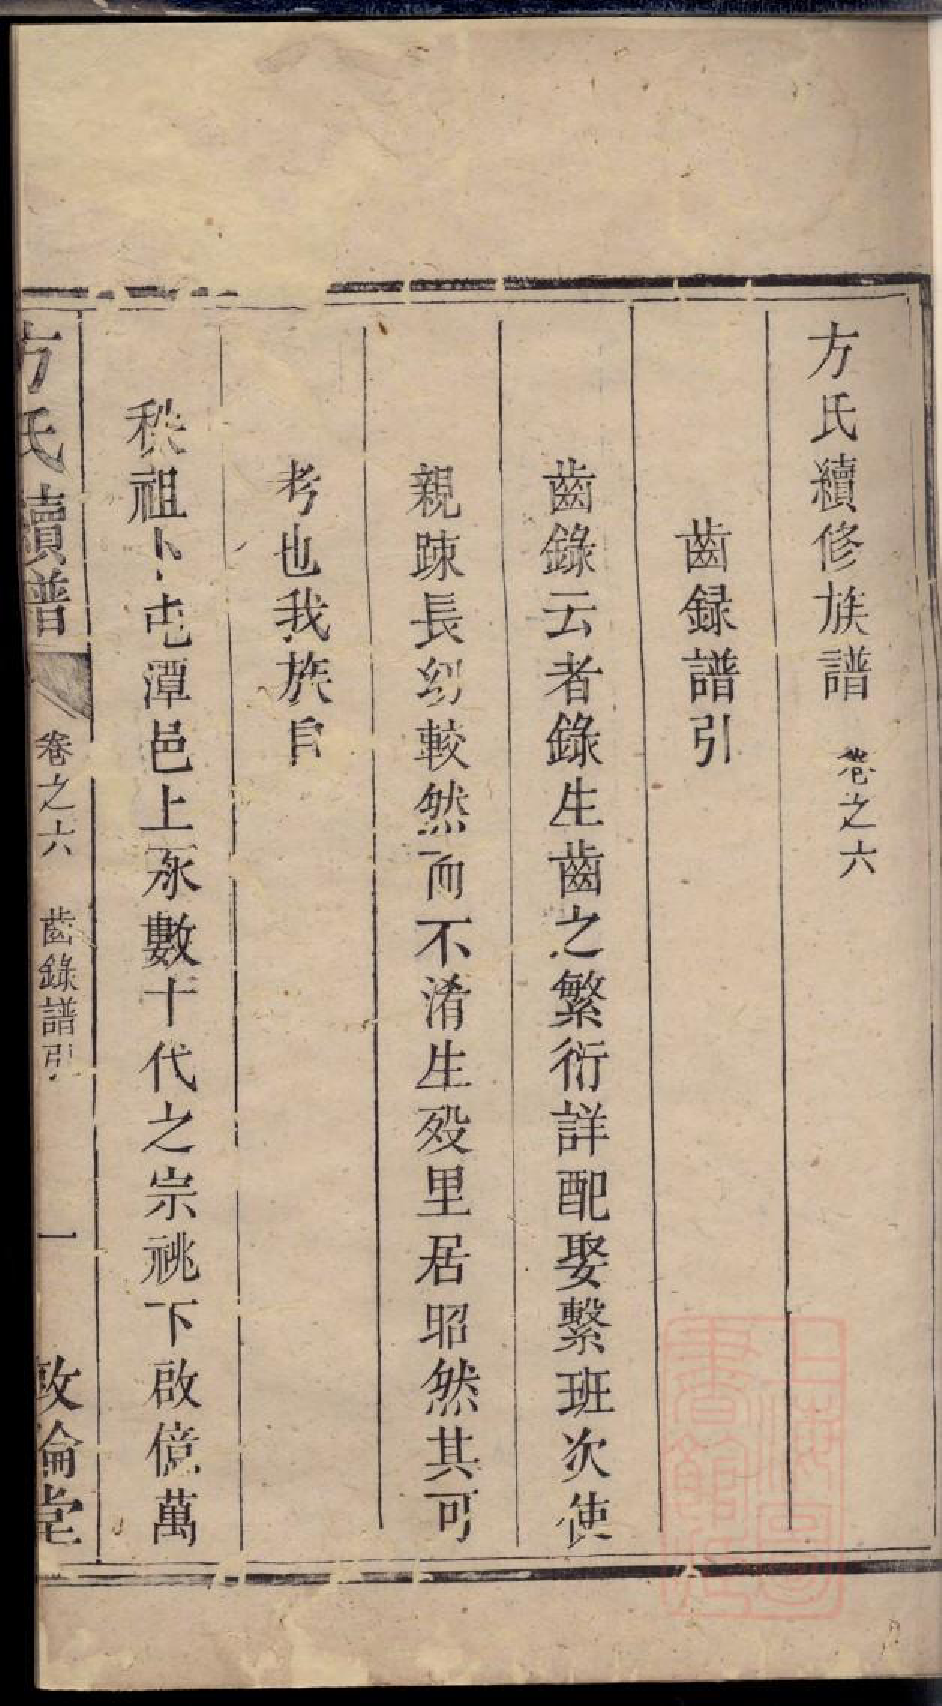 方氏續修族譜 卷之六
齒録譜引
齒錄云者錄生齒之繁衍詳配娶繫班次使
親疎長幼較然而不淆生殁里居昭然其可
考也我族自
秩祖卜屯潭邑上承數十代之宗祧下啟億萬
方氏續譜 卷之六 齒錄譜引 一 敦倫堂
上海圖書館藏